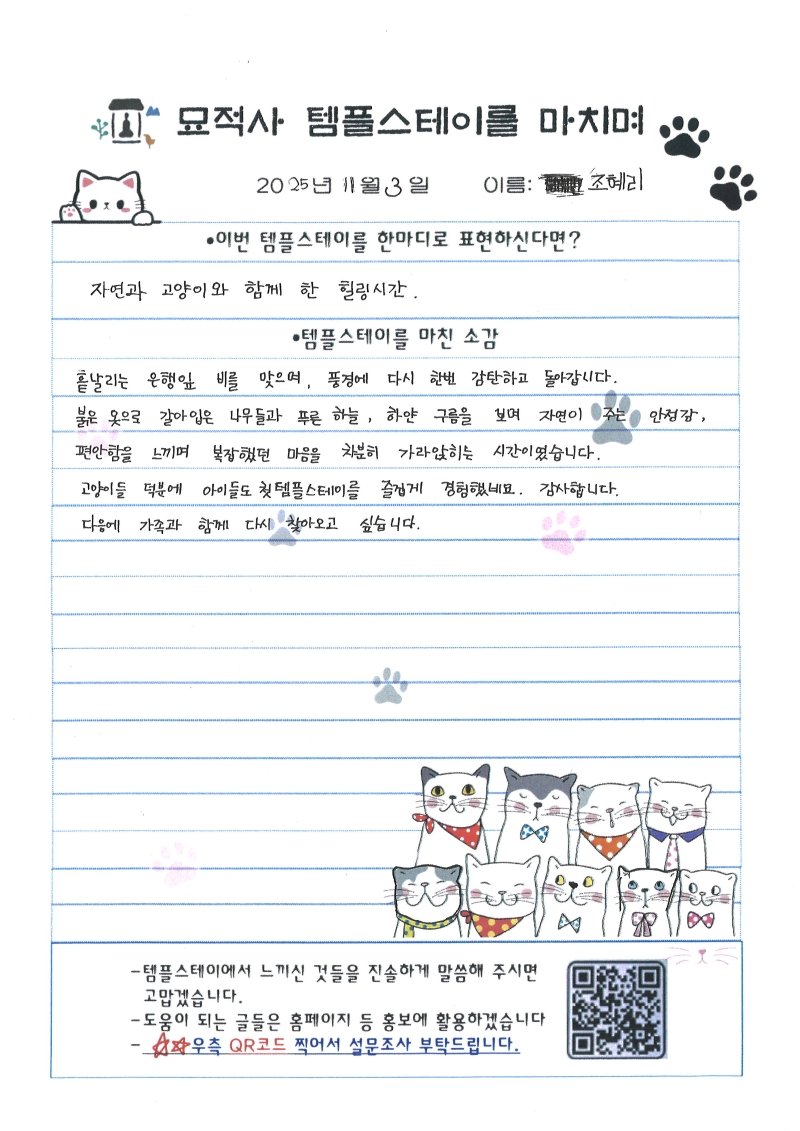 묘적사 템플스테이를 마치며
2025년 11월 3일 이름: 조혜리
•이번 템플스테이를 한마디로 표현하신다면?
자연과 고양이와 함께 한 힐링시간.
•템플스테이를 마친 소감
흩날리는 은행잎 비를 맞으며, 풍경에 다시 한번 감탄하고 돌아갑니다.
붉은 옷으로 갈아입은 나무들과 푸른 하늘, 하얀 구름을 보며 자연이 주는 안정감,
편안함을 느끼며 복잡했던 마음을 차분히 가라앉히는 시간이였습니다.
고양이들 덕분에 아이들도 첫템플스테이를 즐겁게 경험했네요. 감사합니다.
다음에 가족과 함께 다시 찾아오고 싶습니다.
-템플스테이에서 느끼신 것들을 진솔하게 말씀해 주시면
고맙겠습니다.
-도움이 되는 글들은 홈페이지 등 홍보에 활용하겠습니다
- ☆☆우측 QR코드 찍어서 설문조사 부탁드립니다.